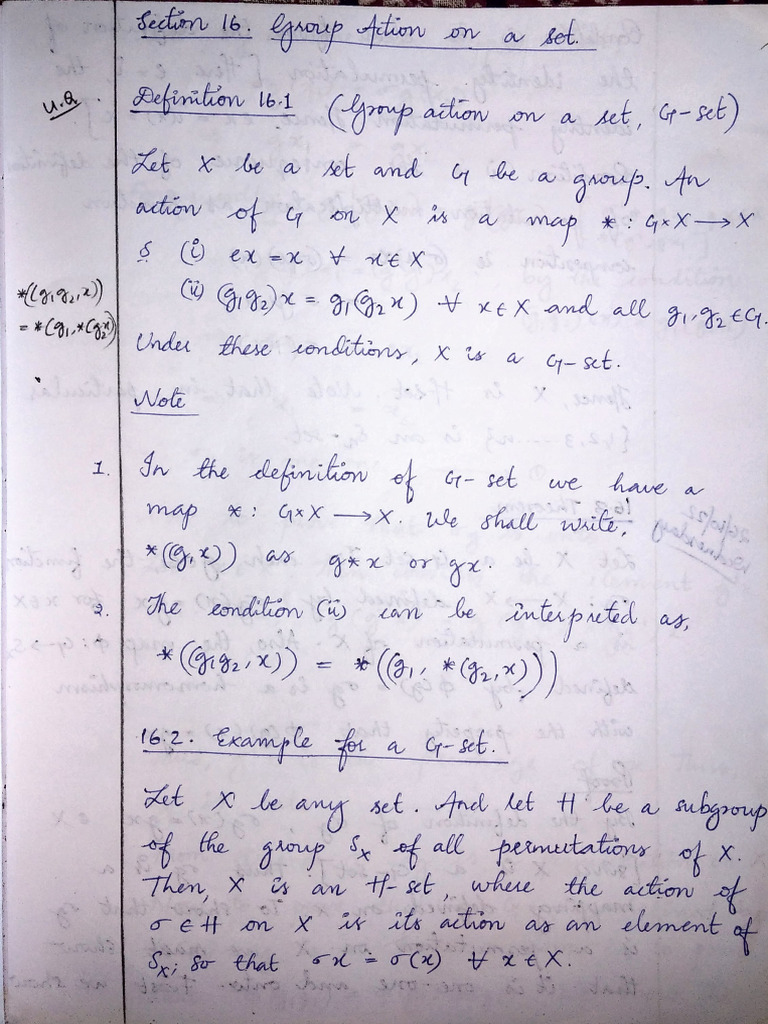 Section 16. Group Action on a set.
U.Q
Definition 16.1 (Group action on a set, G-set)
Let X be a set and G be a group. An
action of G on X is a map * : G×X → X
∮ (i) ex = x ∀ x∈X
(ii) (g₁g₂)x = g₁(g₂x) ∀ x∈X and all g₁, g₂ ∈ G.
*((g₁g₂, x))
= *(g₁, *(g₂x)
Under these conditions, X is a G-set.
Note
1. In the definition of G-set we have a
map * : G×X → X. We shall write,
*(g,x)) as g*x or gx.
2. The condition (ii) can be interpreted as,
*((g₁g₂, x)) = *((g₁, *(g₂, x)))
16.2. Example for a G-set.
Let X be any set. And let H be a subgroup
of the group Sₓ of all permutations of X.
Then, X is an H-set, where the action of
σ ∈ H on X is its action as an element of
Sₓ; so that σx = σ(x) ∀ x ∈ X.